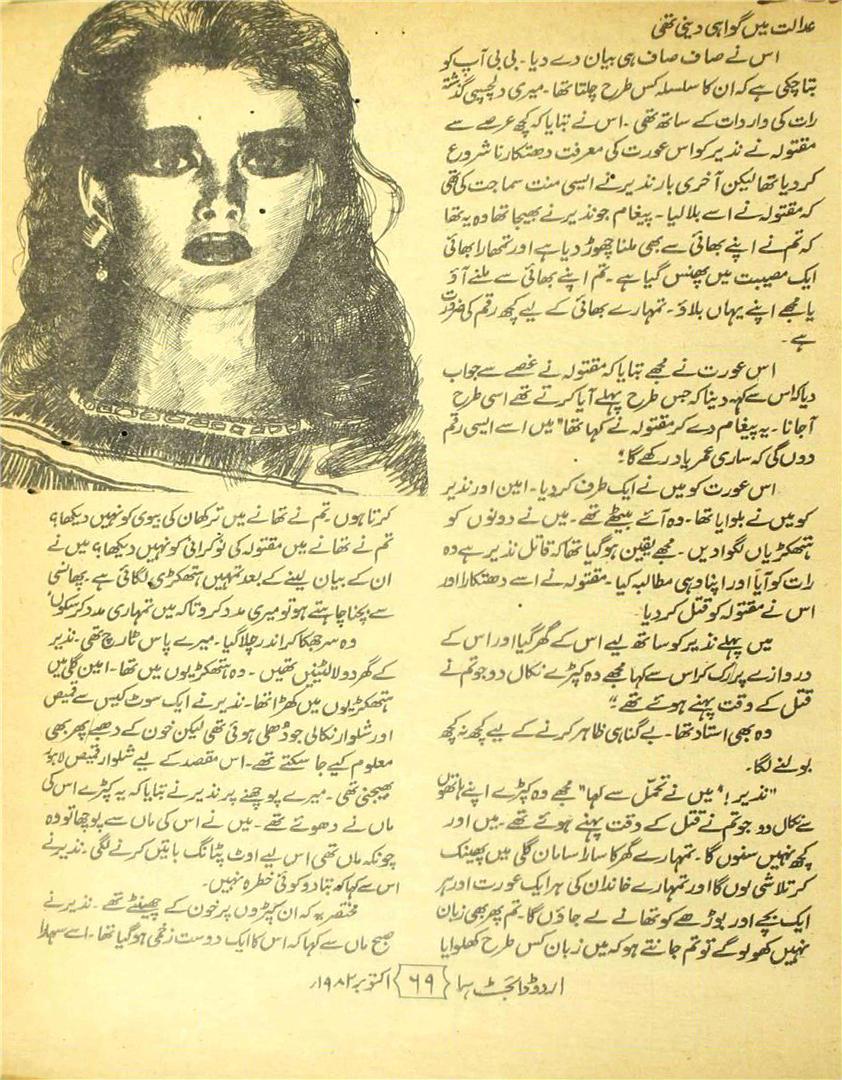 عدالت میں گواہی دینی تھی
اس نے صاف صاف ہی بیان دے دیا۔ بی بی آپ کو
بتا چکی ہے کہ ان کا سلسلہ کس طرح چلتا تھا۔ میری دلچسپی گذشتہ
رات کی واردات کے ساتھ تھی۔ اس نے بتایا کہ کچھ عرصے سے
مقتولہ نے نذیر کو اس عورت کی معرفت دھتکارنا شروع
کر دیا تھا لیکن آخری بار نذیر نے ایسی منت سماجت کی تھی
کہ مقتولہ نے اسے بلا لیا۔ پیغام جو نذیر نے بھیجا تھا وہ یہ تھا
کہ تم نے اپنے بھائی سے بھی ملنا چھوڑ دیا ہے اور تمھارا بھائی
ایک مصیبت میں پھنس گیا ہے۔ تم اپنے بھائی سے ملنے آؤ
یا مجھے اپنے یہاں بلاؤ۔ تمہارے بھائی کے لیے کچھ رقم کی ضرورت
ہے۔
اس عورت نے مجھے بتایا کہ مقتولہ نے غصے سے جواب
دیا کہ اس سے کہہ دینا کہ جس طرح پہلے آیا کرتے تھے اسی طرح
آ جانا۔ یہ پیغام دے کر مقتولہ نے کہا تھا "میں اسے ایسی رقم
دوں گی کہ ساری عمر یاد رکھے گا"
اس عورت کو میں نے ایک طرف کر دیا۔ امین اور نذیر
کو میں نے بلوایا تھا۔ وہ آئے بیٹھے تھے۔ میں نے دونوں کو
ہتھکڑیاں لگوا دیں۔ مجھے یقین ہو گیا تھا کہ قاتل نذیر ہے وہ
رات کو آیا اور اپنا وہی مطالبہ کیا۔ مقتولہ نے اسے دھتکارا اور
اس نے مقتولہ کو قتل کر دیا۔
میں پہلے نذیر کو ساتھ لیے اس کے گھر گیا اور اس کے
دروازے پر رک کر اس سے کہا مجھے وہ کپڑے نکال دو جو تم نے
قتل کے وقت پہنے ہوئے تھے"
وہ بھی استاد تھا۔ بے گناہی ظاہر کرنے کے لیے کچھ نہ کچھ
بولنے لگا۔
"نذیر!" میں نے تحمل سے کہا "مجھے وہ کپڑے اپنے ہاتھوں
سے نکال دو جو تم نے قتل کے وقت پہنے ہوئے تھے۔ میں اور
کچھ نہیں سنوں گا۔ تمہارے گھر کا سارا سامان گلی میں پھینک
کر تلاشی لوں گا اور تمہارے خاندان کی ہر ایک عورت اور ہر
ایک بچے اور بوڑھے کو تھانے لے جاؤں گا۔ تم پھر بھی زبان
نہیں کھولو گے تو تم جانتے ہو کہ میں زبان کس طرح کھلوایا
کرتا ہوں۔ تم نے تھانے میں ترکھان کی بیوی کو نہیں دیکھا؟
تم نے تھانے میں مقتولہ کی نوکرانی کو نہیں دیکھا؟ میں نے
ان کے بیان لینے کے بعد تمہیں ہتھکڑی لگائی ہے۔ پھانسی
سے بچنا چاہتے ہو تو میری مدد کرو تاکہ میں تمہاری مدد کر سکوں"
وہ سر جھکا کر اندر چلا گیا۔ میرے پاس ٹارچ تھی۔ نذیر
کے گھر دو لالٹینیں تھیں۔ وہ ہتھکڑیوں میں تھا۔ امین گلی میں
ہتھکڑیوں میں کھڑا تھا۔ نذیر نے ایک سوٹ کیس سے قمیص
اور شلوار نکالی جو دُھلی ہوئی تھی لیکن خون کے دھبے پھر بھی
معلوم کیے جا سکتے تھے۔ اس مقصد کے لیے شلوار قمیص لاہور
بھیجنی تھی۔ میرے پوچھنے پر نذیر نے بتایا کہ یہ کپڑے اس کی
ماں نے دھوئے تھے۔ میں نے اس کی ماں سے پوچھا تو وہ
چونکہ ماں تھی اس لیے اوٹ پٹانگ باتیں کرنے لگی۔ نذیر نے
اس سے کہا کہ بتا دو کوئی خطرہ نہیں۔
مختصر یہ کہ ان کپڑوں پر خون کے چھینٹے تھے۔ نذیر نے
صبح ماں سے کہا کہ اس کا ایک دوست زخمی ہو گیا تھا۔ اسے سہارا
اردو ڈائجسٹ ۶۹ اکتوبر ۱۹۸۲ء